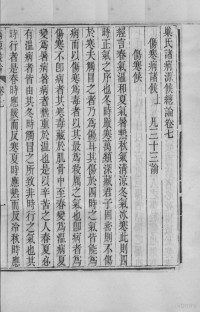 巢氏諸病源候總論卷七
傷寒病諸候上 凡三十三論
傷寒候
經言春氣溫和夏氣暑熱秋氣清涼冬氣冰寒此則四
時正氣之序也冬時嚴寒萬類深藏君子固密則不傷
於寒夫觸冒之者乃為傷耳其傷於四時之氣皆能為
病而以傷寒為毒者以其最為殺厲之氣也即病者為
傷寒不即病者其寒毒藏於肌骨中至春變為溫病夏
變為暑病暑病者熱重於溫也是以辛苦之人春夏必
有溫病者皆由其冬時觸冒之所致非時行之氣也其
時行者是春時應暖而反寒夏時應熱而反冷秋時應